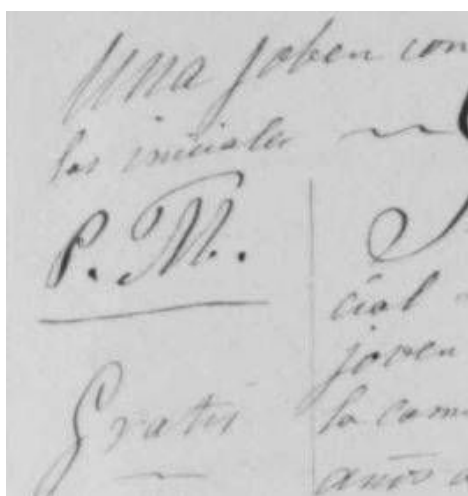 Una joben con
las iniciales
P. M.
Gratis
cial
joven
la cam
años